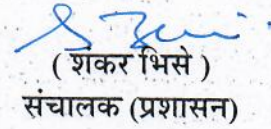 ( शंकर भिसे )
संचालक (प्रशासन)